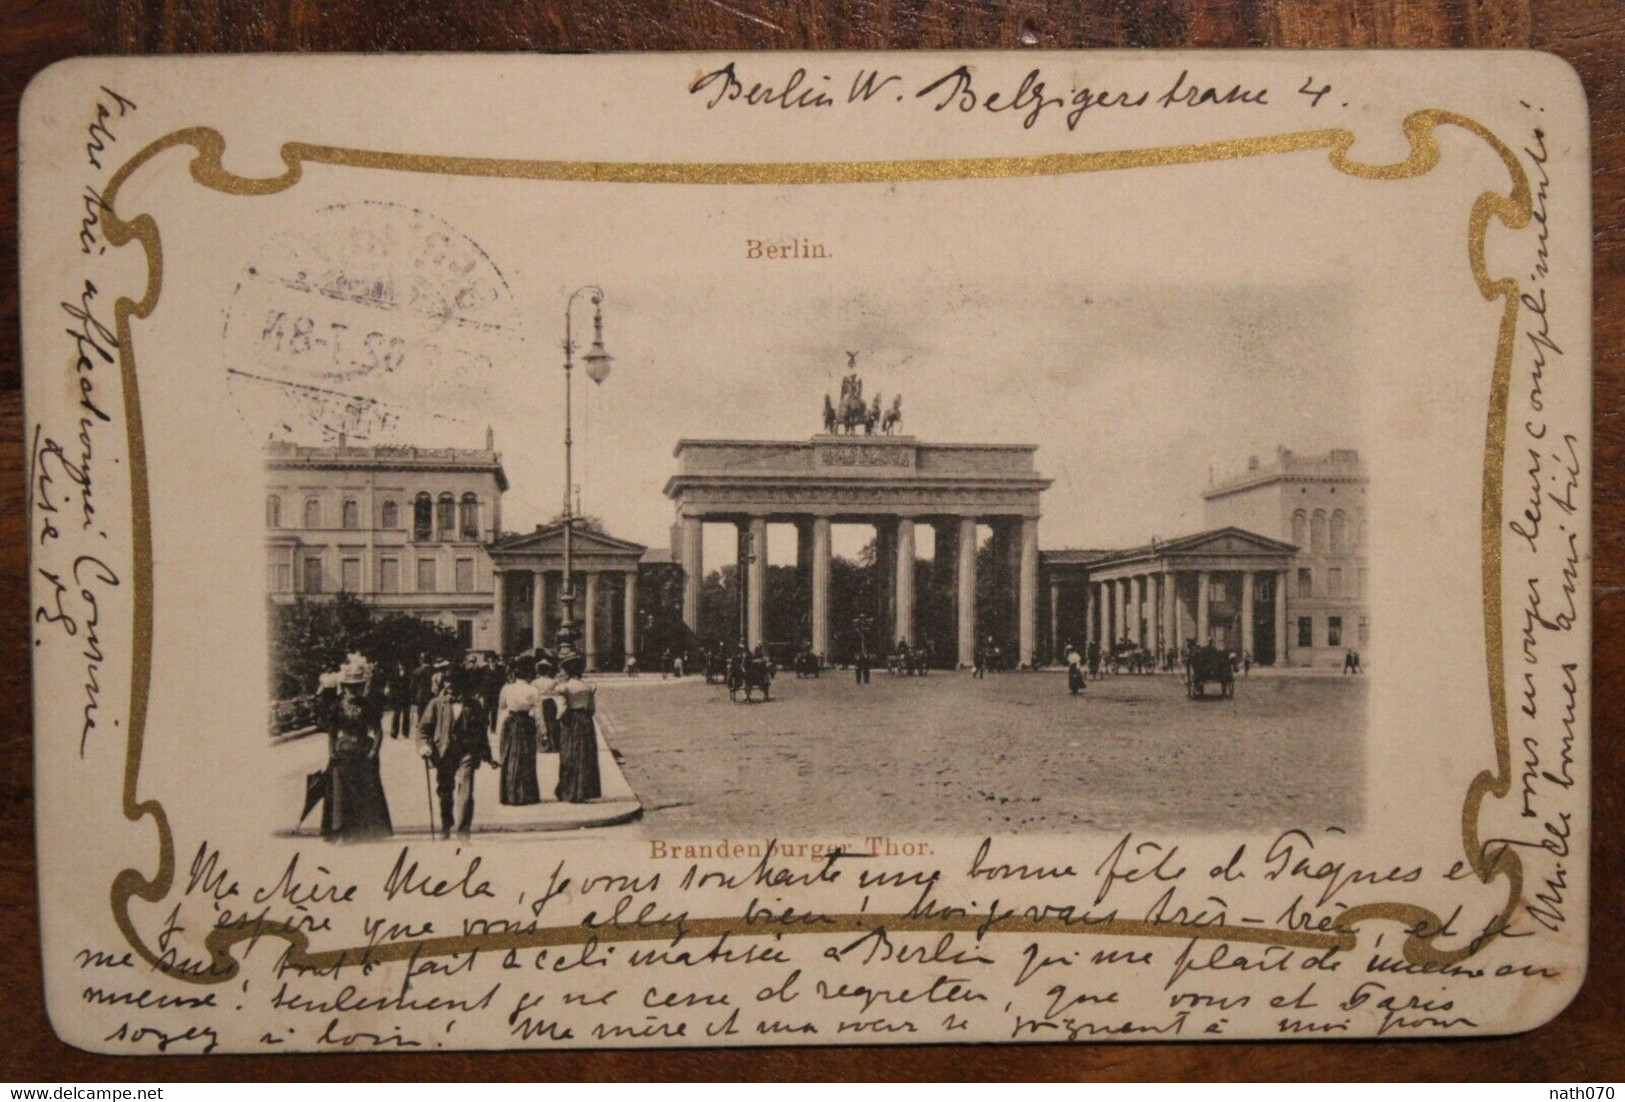 Berlin W. Belzigerstrasse 4.
Berlin.
Brandenburger Thor.
Ma chère Miéla, je vous souhaite une bonne fête de Pâques et
j'espère que vous allez bien! Moi je vais très-très, et je
me suis tout à fait acclimatisée à Berlin qui me plaît de mieux en
mieux! Seulement je ne cesse de regretter, que vous et Paris
soyez si loin! Ma mère et ma sœur se joignent à moi pour
vous envoyer leurs compliments!
Mille bonnes amitiés
Votre très affectionnée Cousine
Lise
nath070